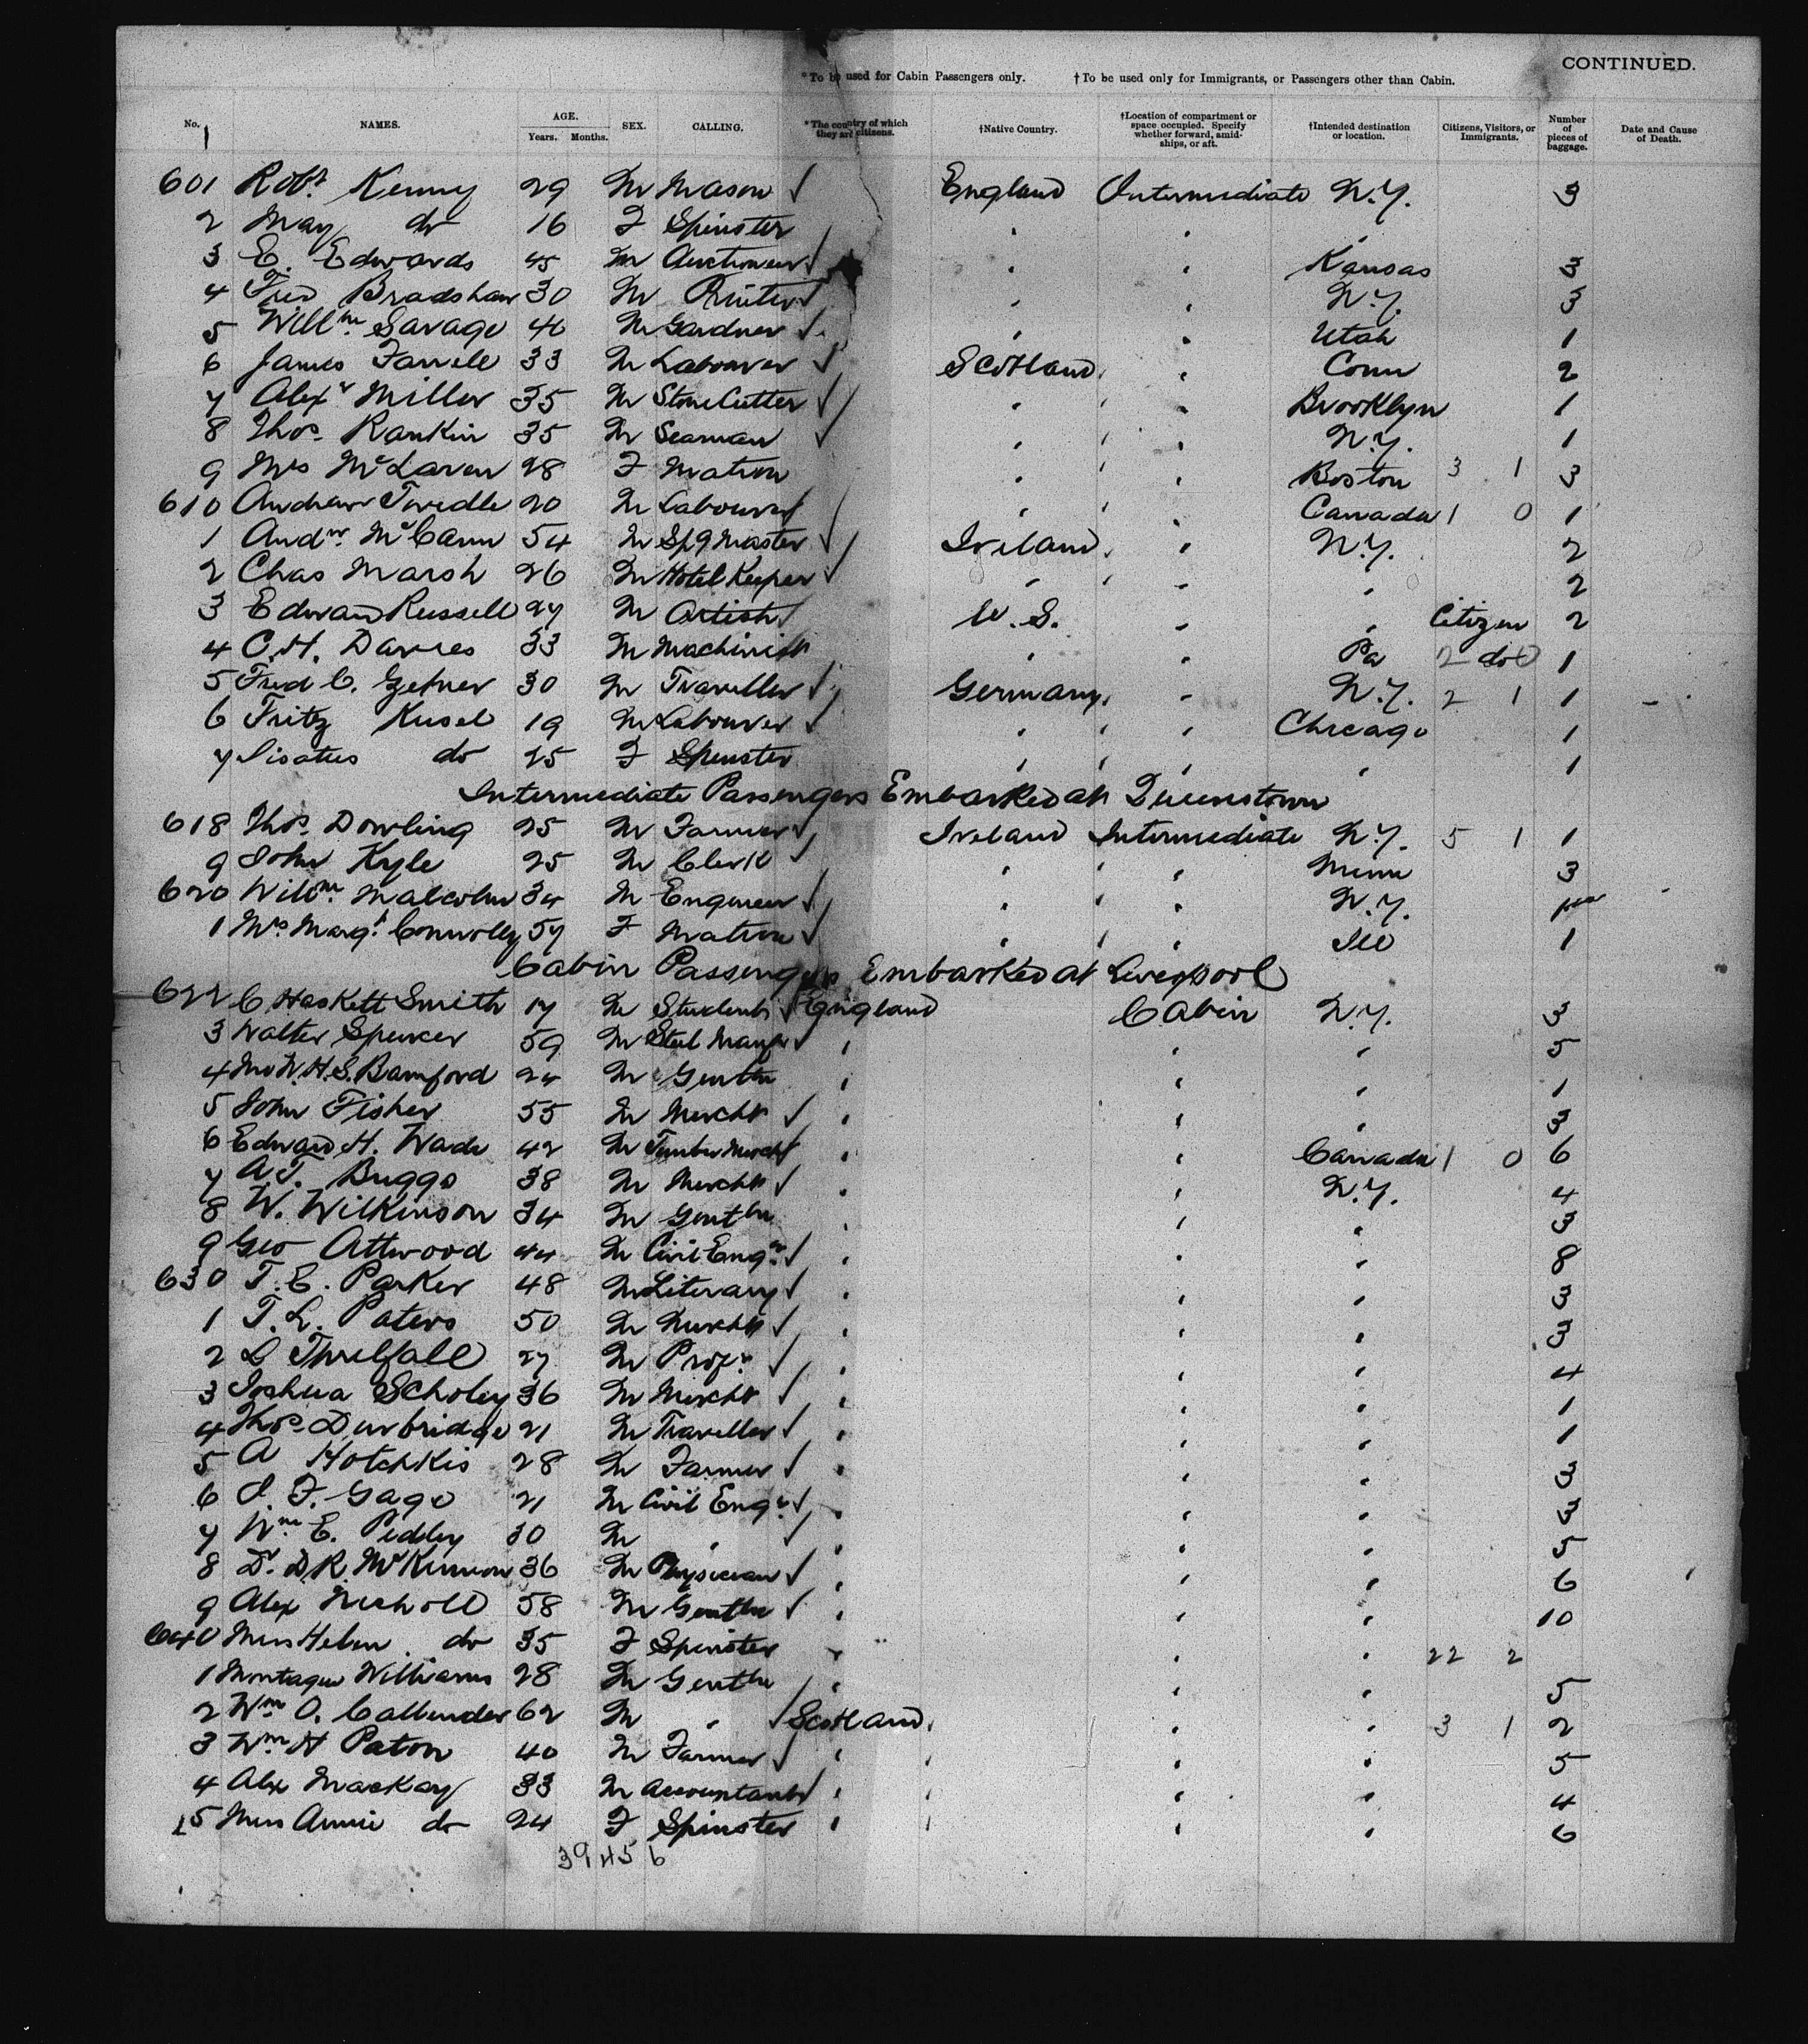 CONTINUED.
*To be used for Cabin Passengers only. †To be used only for Immigrants, or Passengers other than Cabin.
No. NAMES. AGE. Years. Months. SEX. CALLING. *The country of which they are citizens. †Native Country. †Location of compartment or space occupied. Specify whether forward, amidships, or aft. †Intended destination or location. Citizens, Visitors, or Immigrants. Number of pieces of baggage. Date and Cause of Death.
1
601 Robt Kenny 29 M Mason ✓ England Intermediate N.Y. 3
2 May do 16 F Spinster " " "
3 E. Edwards 45 M Auctioneer ✓ " " Kansas 3
4 Fred Bradshaw 30 M Printer ✓ " " N.Y. 3
5 Willm Savage 40 M Gardner ✓ " " Utah 1
6 James Farrell 33 M Labourer ✓ Scotland " Conn 2
7 Alexr Miller 35 M StoneCutter ✓ " " Brooklyn 1
8 Thos. Rankin 35 M Seaman ✓ " " N.Y. 1
9 Mrs McLaren 28 F Matron " " Boston 3 1 3
610 Andrew Twedle 20 M Labourer ✓ " " Canada 1 0 1
1 Andw. McCann 54 M Spg Master ✓ Ireland " N.Y. 2
2 Chas Marsh 26 M Hotel Keeper ✓ " " " 2
3 Edward Russell 27 M Artist U.S. " " Citizen 2
4 C.H. Davies 33 M Machinist " " Pa 2 do 0 1
5 Fred C. 30 M Traveller ✓ Germany " N.Y. 2 1 1
6 Fritz Kusel 19 M Labourer ✓ " " Chicago 1
7 do 25 F Spinster " " " 1
Intermediate Passengers Embarked at Queenstown
618 Thos. Dowling 25 M Farmer ✓ Ireland Intermediate N.Y. 5 1 1
9 John Kyle 25 M Clerk ✓ " " Minn 3
620 Willm. Malcolm 34 M Engineer ✓ " " N.Y.
1 Mrs Margt. Connolly 57 F Matron ✓ " " Ill 1
Cabin Passengers Embarked at Liverpool
622 C Haskett Smith 17 M Student ✓ England Cabin N.Y. 3
3 Walter Spencer 59 M Steel Manfr ✓ " " " 5
4 W.H.S. Bamford 24 M Gentln " " " 1
5 John Fisher 55 M Mercht ✓ " " " 3
6 Edward H. Wade 42 M Timber Mercht ✓ " " Canada 1 0 6
7 A.T. Buggs 38 M Mercht ✓ " " N.Y. 4
8 W. Wilkinson 34 M Gentln " " " 3
9 Geo Attwood 44 M Civil Engr. ✓ " " " 8
630 T.E. Parker 48 M Literary ✓ " " " 3
1 T.L. Paters 50 M Mercht ✓ " " " 3
2 L Threlfall 27 M Profr. ✓ " " " 4
3 Joshua Scholey 36 M Mercht ✓ " " " 1
4 Thos. Durbridge 21 M Traveller ✓ " " " 1
5 A Hotchkis 28 M Farmer ✓ " " " 3
6 J.F. Gage 21 M Civil Engr. ✓ " " " 3
7 Wm. E. Pedley 30 M " ✓ " " " 5
8 Dr. D.R. McKinnon 36 M Physician ✓ " " " 6
9 Alex Nicholl 58 M Gentln ✓ " " " 10
640 Miss Helen do 35 F Spinster " " " 22 2
1 Montague Williams 28 M Gentln " " " 5
2 Wm. O. Callender 62 M " ✓ Scotland " " 3 1 2
3 Wm. H Paton 40 M Farmer ✓ " " " 5
4 Alex Mackay 33 M Accountant ✓ " " " 4
5 Miss Annie do 24 F Spinster " " " 6
39456